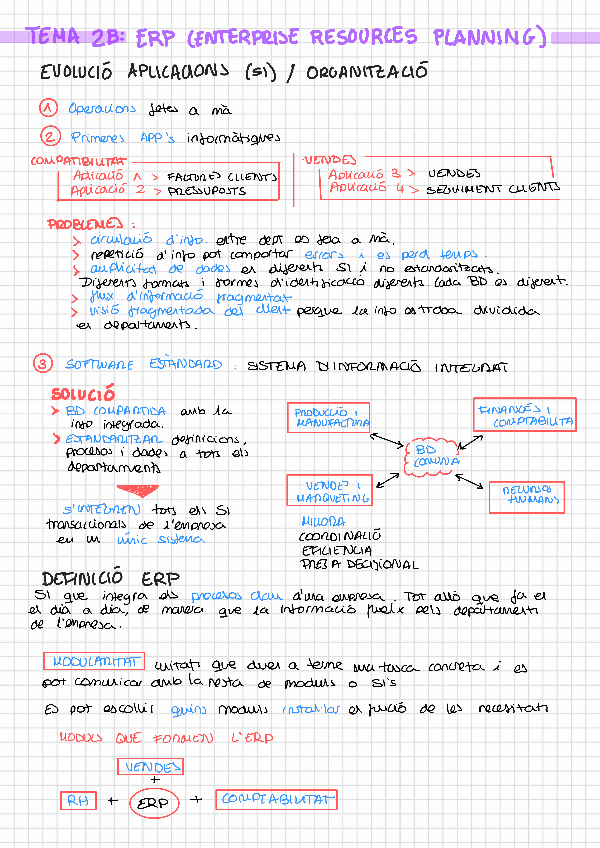 TEMA 2B: ERP (ENTERPRISE RESOURCES PLANNING)
EVOLUCIÓ APLICACIONS (SI) / ORGANITZACIÓ
1 Operacions fetes a mà
2 Primeres APP's informàtiques
COMPATIBILITAT
Aplicació 1 > FACTURES CLIENTS
Aplicació 2 > PRESSUPOSTS
VENDES
Aplicació 3 > VENDES
Aplicació 4 > SEGUIMENT CLIENTS
PROBLEMES:
> circulació d'info. entre dept es feia a mà.
> repetició d'info pot comportar errors i es perd temps.
> duplicitat de dades en diferents SI i no estandaritzats.
Diferents formats i formes d'identificació diferents. Cada BD es diferent.
> flux d'informació fragmentat
> visió fragmentada del client perque la info estroba dividida
en departaments.
3 SOFTWARE ESTÀNDARD: SISTEMA D'INFORMACIÓ INTEGRAT
SOLUCIÓ
> BD COMPARTIDA amb la
info integrada.
> ESTANDARITZAR definicions,
processos i dades a tots els
departaments
S'INTEGREN tots els SI
transaccionals de l'empresa
en un únic sistema
PRODUCIÓ I
MANUFACTURA
FINANCES I
COMPTABILITAT
BD
COMUNA
VENDES I
MARQUETING
RECURSOS
HUMANS
MILLORA
COORDINACIÓ
EFICIENCIA
PRESA DECISIONAL
DEFINICIÓ ERP
SI que integra els processos clau d'una empresa. Tot allò que fa el
el dia a dia, de manera que la informació flueix pels departaments
de l'empresa.
MODULARITAT unitats que duen a terme una tasca concreta i es
pot comunicar amb la resta de moduls o SI's
Es pot escollir quins moduls instal·lar en funció de les necessitats
MODULS QUE FORMEN L'ERP
VENDES
+
RH + ERP + COMPTABILITAT